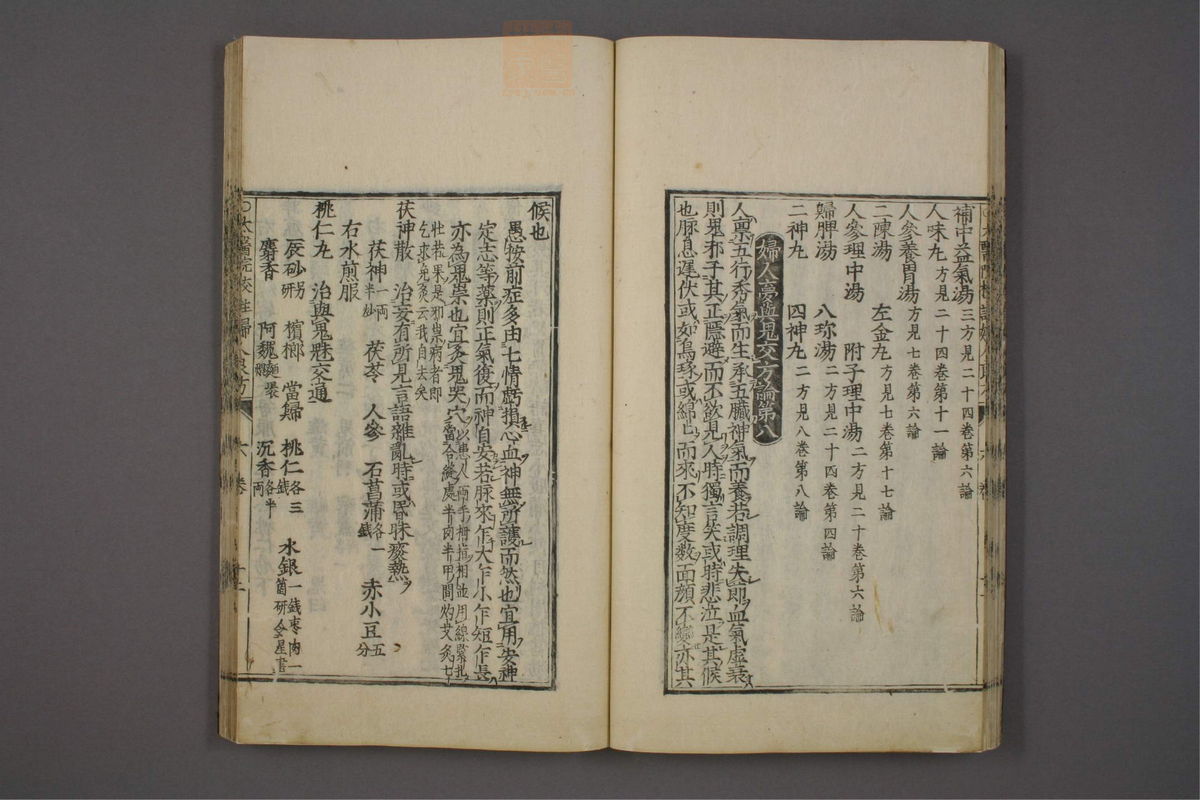 補中益氣湯三方見二十四卷第六論
人味丸方見二十四卷第十一論
人參養胃湯方見七卷第六論
二陳湯 左金丸方見七卷第十七論
人參理中湯 附子理中湯二方見二十卷第六論
歸脾湯 八珍湯二方見二十四卷第四論
二神丸 四神丸二方見八卷第八論
婦人夢與鬼交方論第八
人禀五行秀氣而生承五臟神氣而養若調理失節血氣虛衰
則鬼邪于其正隱避而不欲見人時獨言笑或時悲泣是其候
也脉息遲伏或如鳥啄或綿乜而來不知度数面顔不變亦其
候也
愚按前症多由七情虧損心血神無所護而然也宜用安神
定志等藥則正氣復而神自安若脉來乍大乍小乍短乍長
亦為鬼祟也宜灸鬼哭穴以患人兩手拇指相並用線緊扎當合縫處半肉半甲間灼艾灸七
壯若果是邪祟病者即乞求免灸云我自去矣
茯神散 治妄有所見言語雜亂時或昏昧發熱
茯神一兩半炒 茯苓 人參 石菖蒲各一錢 赤小豆五分
右水煎服
桃仁丸 治與鬼魅交通
辰砂另研 檳榔 當歸 桃仁各三錢 水銀一錢棗肉一箇研令星盡
麝香 阿魏麵裹 沉香各半兩
○太醫院校註婦人良方 六卷